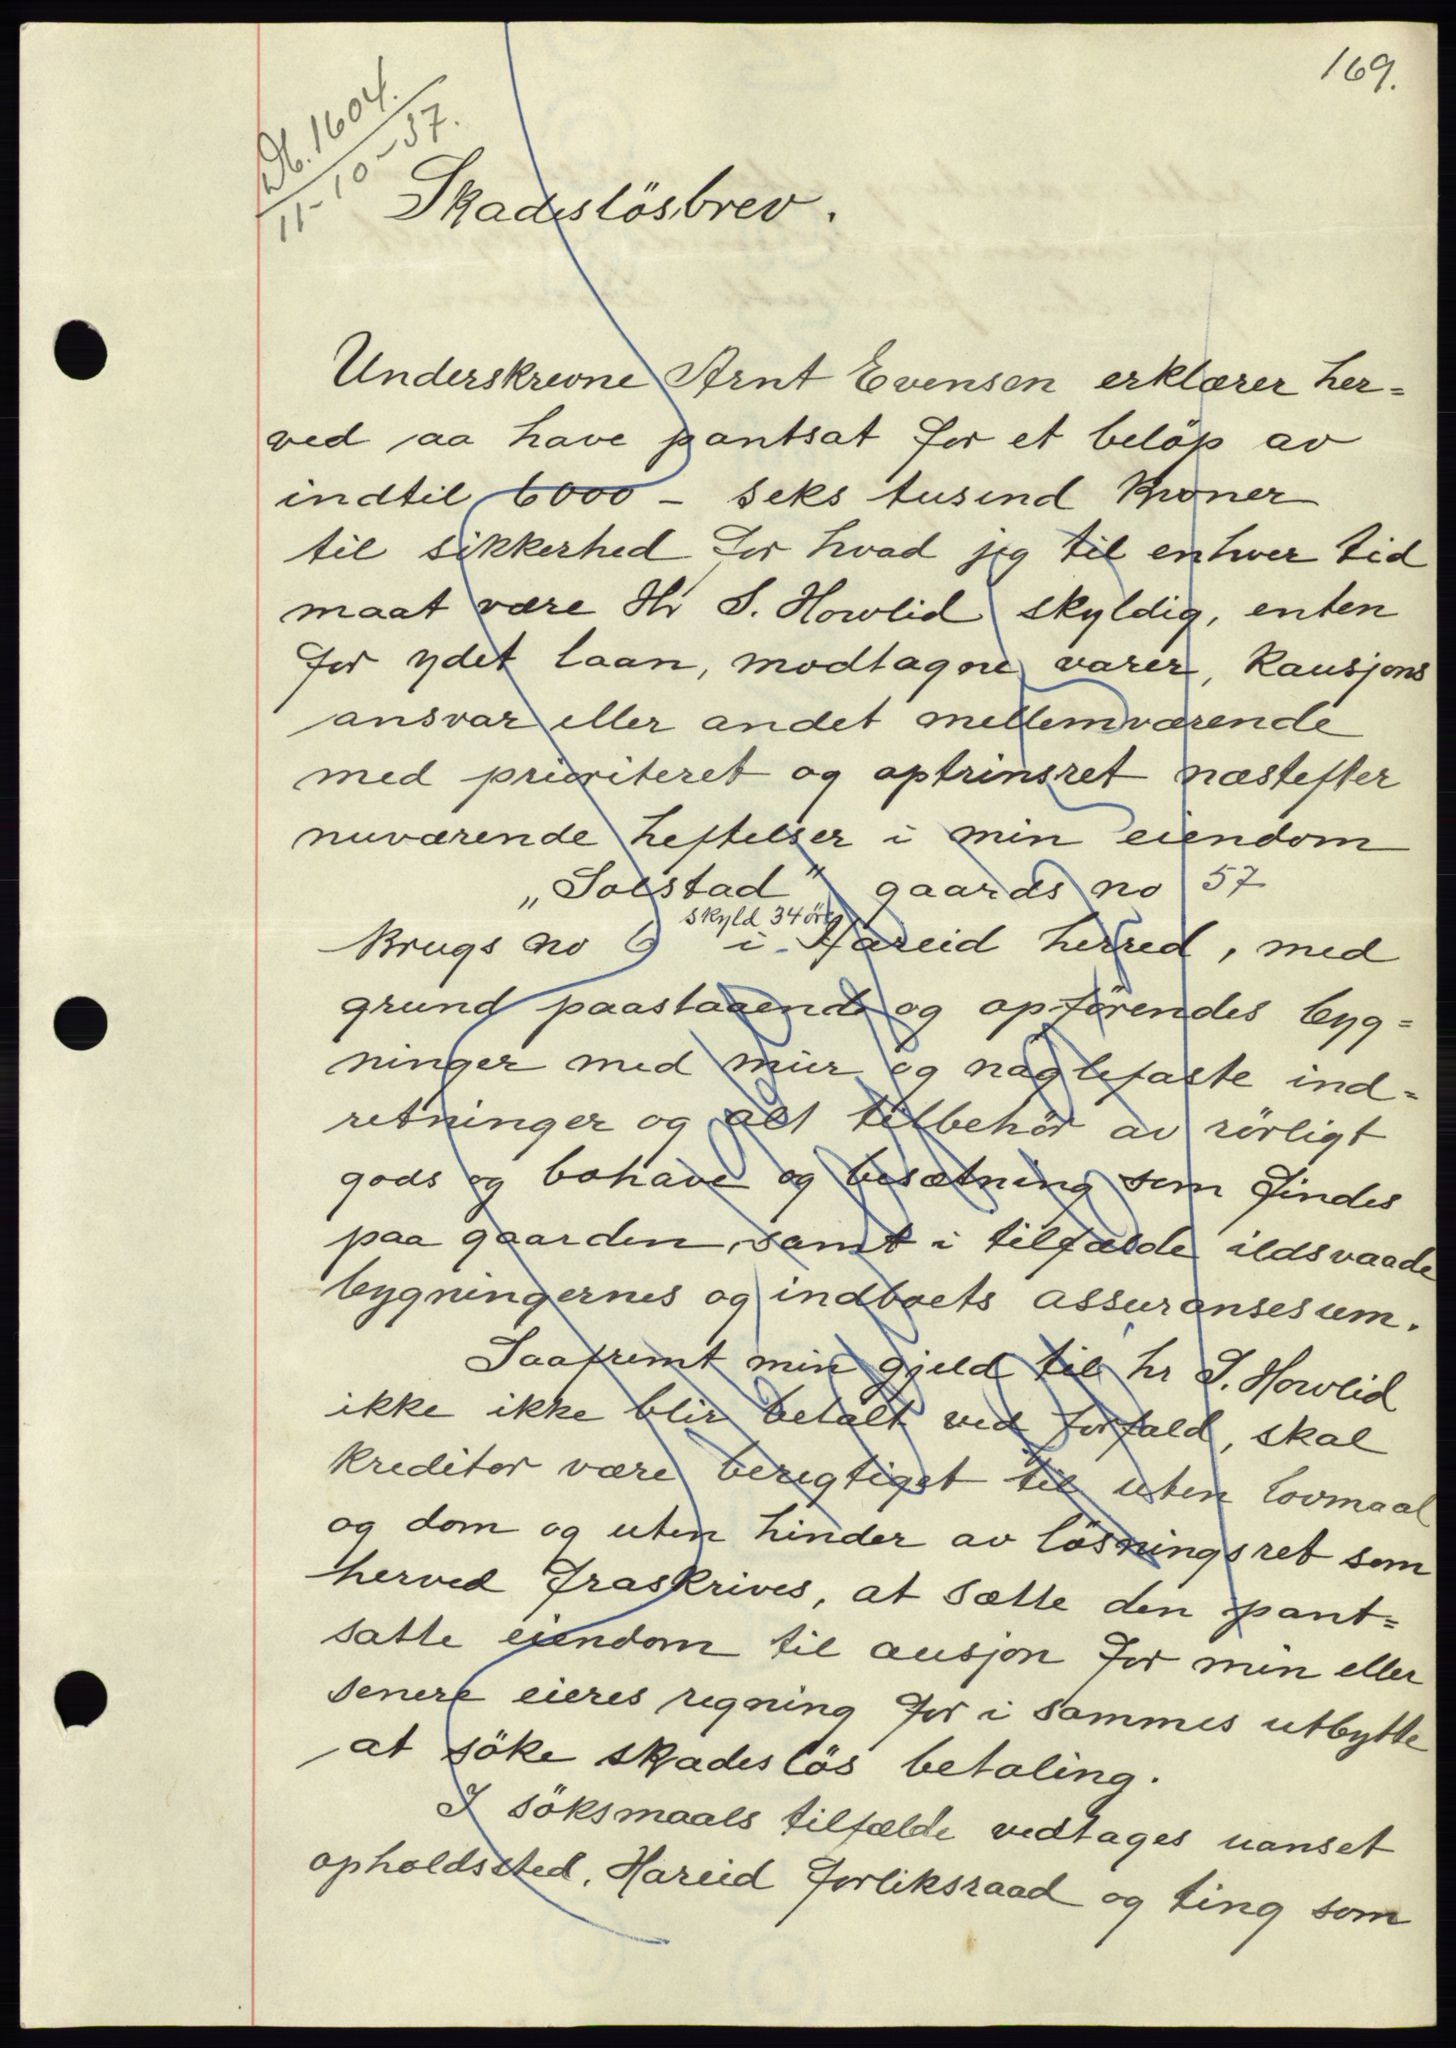 169.
Db. 1604.
11-10-37.
Skadeslösbrev.
Underskrevne Arnt Evensen erklærer her=
ved aa have pantsat for et belöp av
indtil 6000 - seks tusend Kroner
til sikkerhed for hvad jeg til enhver tid
maat være Hr S. Howlid skyldig, enten
for ydet laan, modtagne varer, Kausjons
ansvar eller andet mellemværende
med prioriteret og optrinsret næstefter
nuværende heftelser i min eiendom
„Solstad" gaards no 57
skyld 34 öre
Brugs no 6 i Hareid herred, med
grund paastaaende og opförendes byg=
ninger med mur og naglefaste ind=
retninger og alt tilbehör av rörligt
gods og bohave og besætning som findes
paa gaarden, samt i tilfælde ildsvaade
bygningernes og indboets assuransesum.
Saafremt min gjeld til hr S. Howlid
ikke ikke blir betalt ved forfald, skal
kreditor være beregtiget til uten lovmaal
og dom og uten hinder av lösningsret som
herved fraskrives, at sætte den pant=
satte eiendom til ausjon for min eller
senere eieres regning for i sammes utbytte
at söke skadeslös betaling.
I söksmaals tilfælde vedtages uanset
opholdssted, Hareid forliksraad og ting som